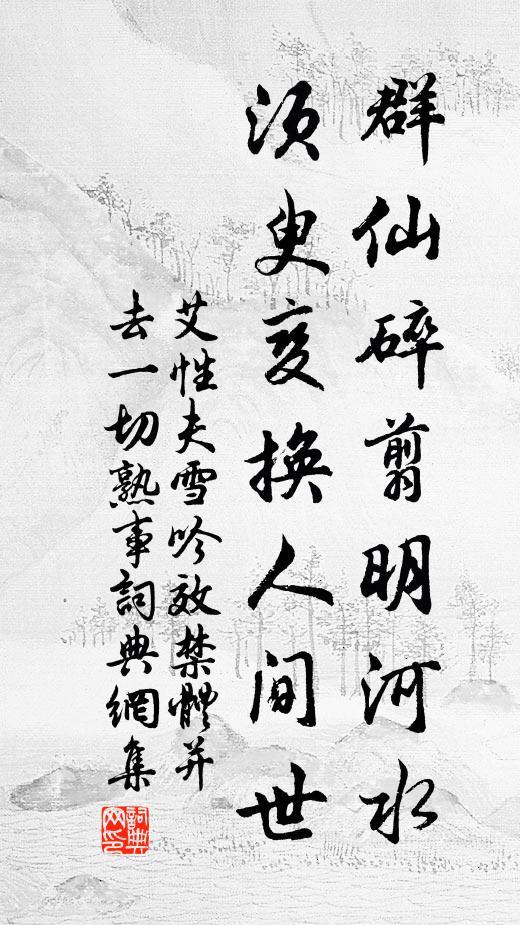 群仙碎剪明河水
須臾变換人间世
艾性夫雪吟效禁體并
去一切熟事詞典網集
詞典网印